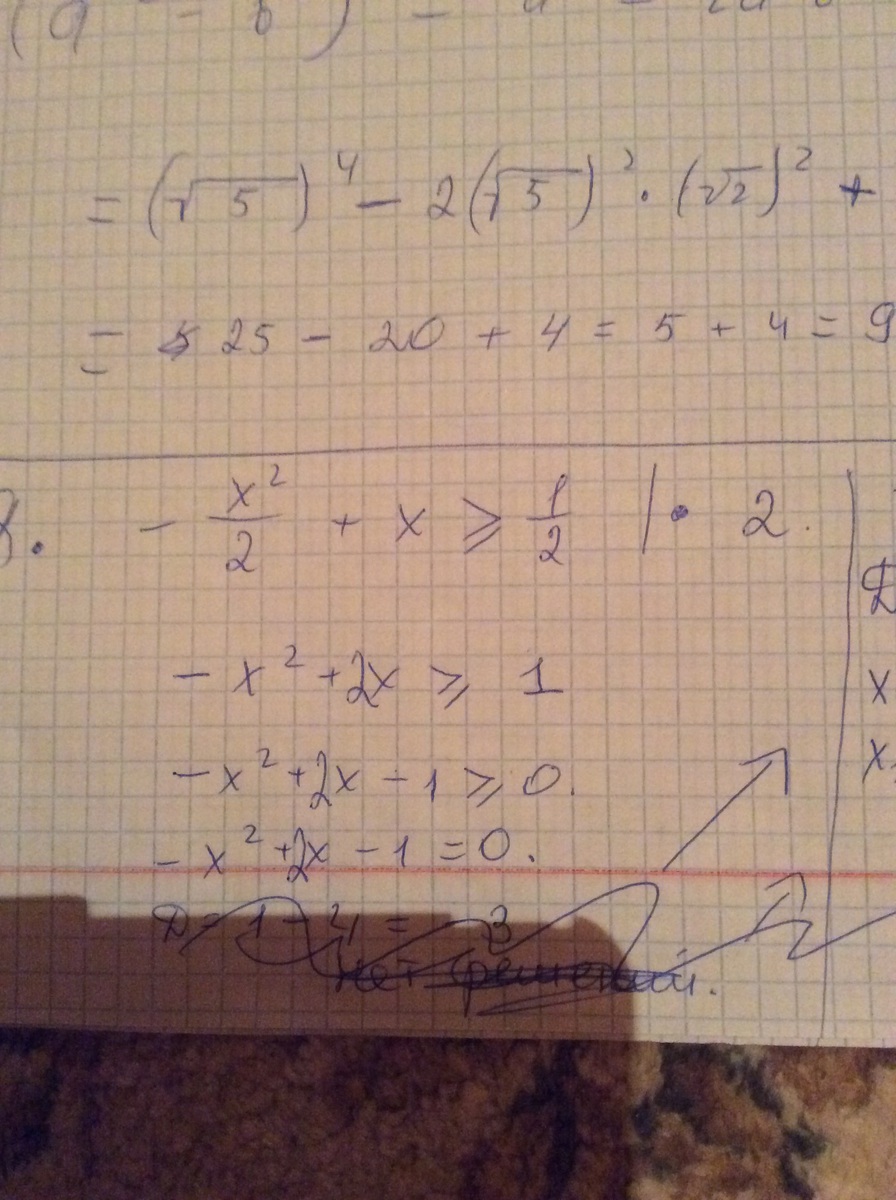 = (√5)⁴ - 2(√5)² · (√2)² +
= 25 - 20 + 4 = 5 + 4 = 9
- x²/2 + x ⩾ 1/2 | · 2.
- x² + 2x ⩾ 1
- x² + 2x - 1 ⩾ 0.
- x² + 2x - 1 = 0.
D = 1 - 4 = - 3
нет решений.
x
x